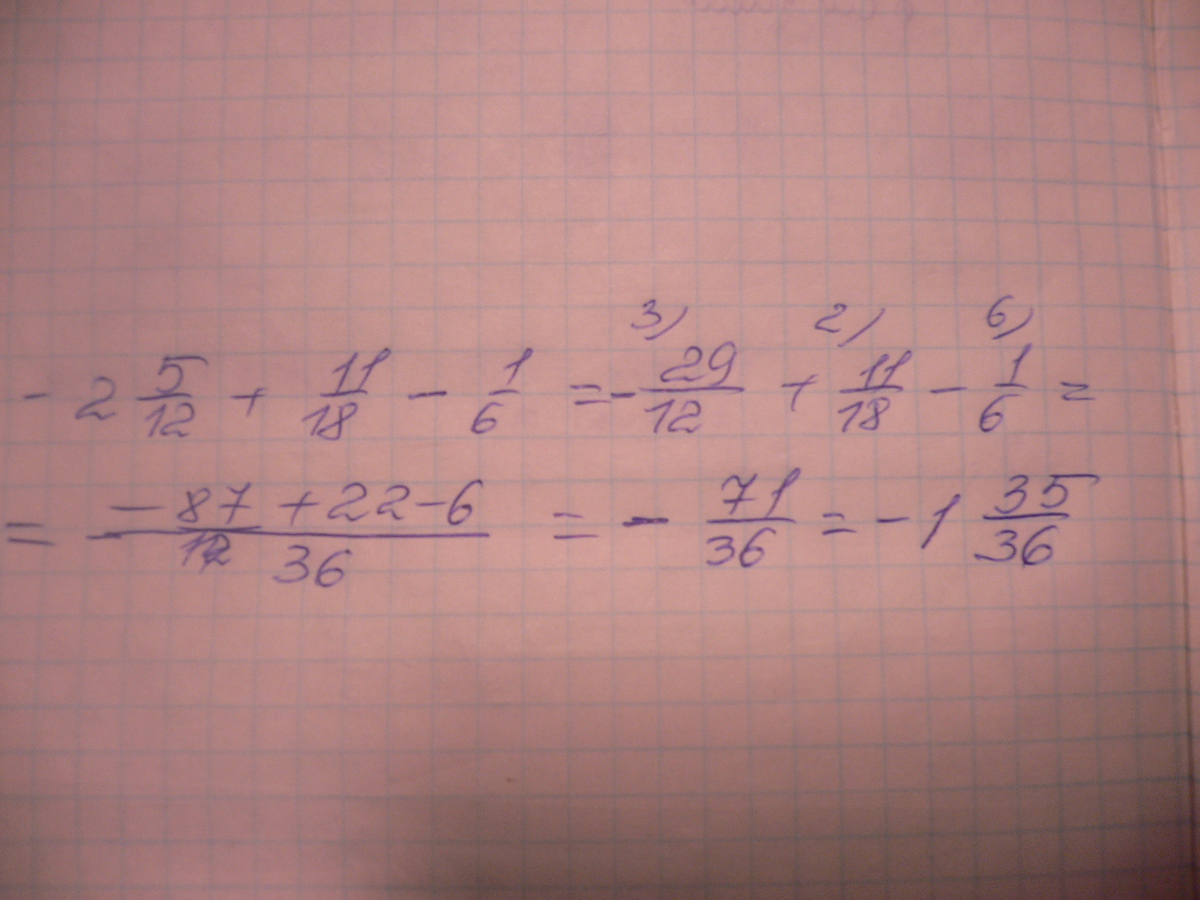 3) 2) 6)
- 2 5/12 + 11/18 - 1/6 = - 29/12 + 11/18 - 1/6 =
= (-87 + 22 - 6)/36 = - 71/36 = - 1 35/36